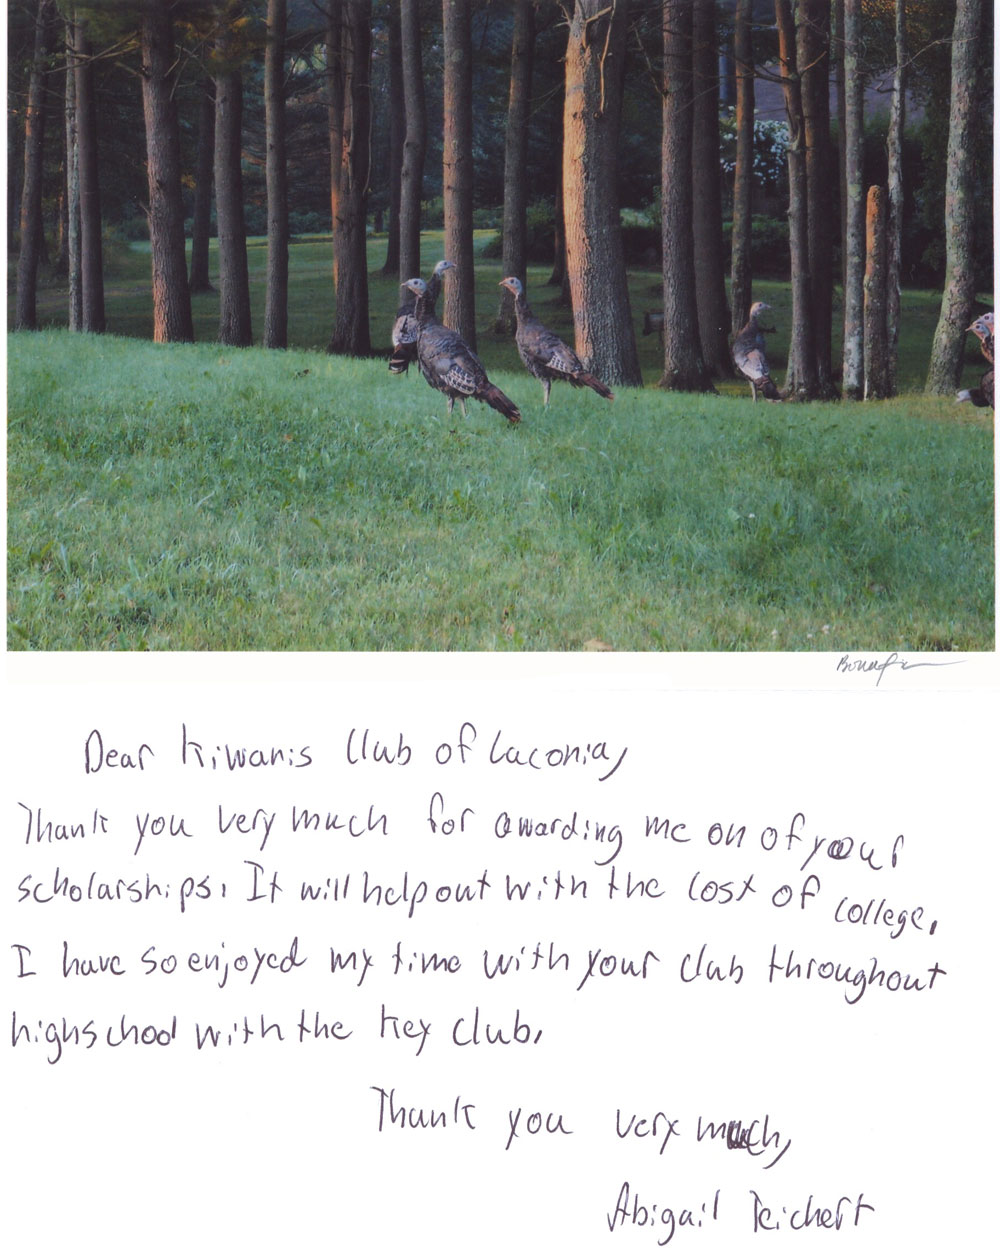 Dear Kiwanis Club of Laconia,
Thank you very much for awarding me on of your
scholarships. It will help out with the cost of college.
I have so enjoyed my time with your club throughout
highschool with the Key Club.
Thank you very much,
Abigail Reichert